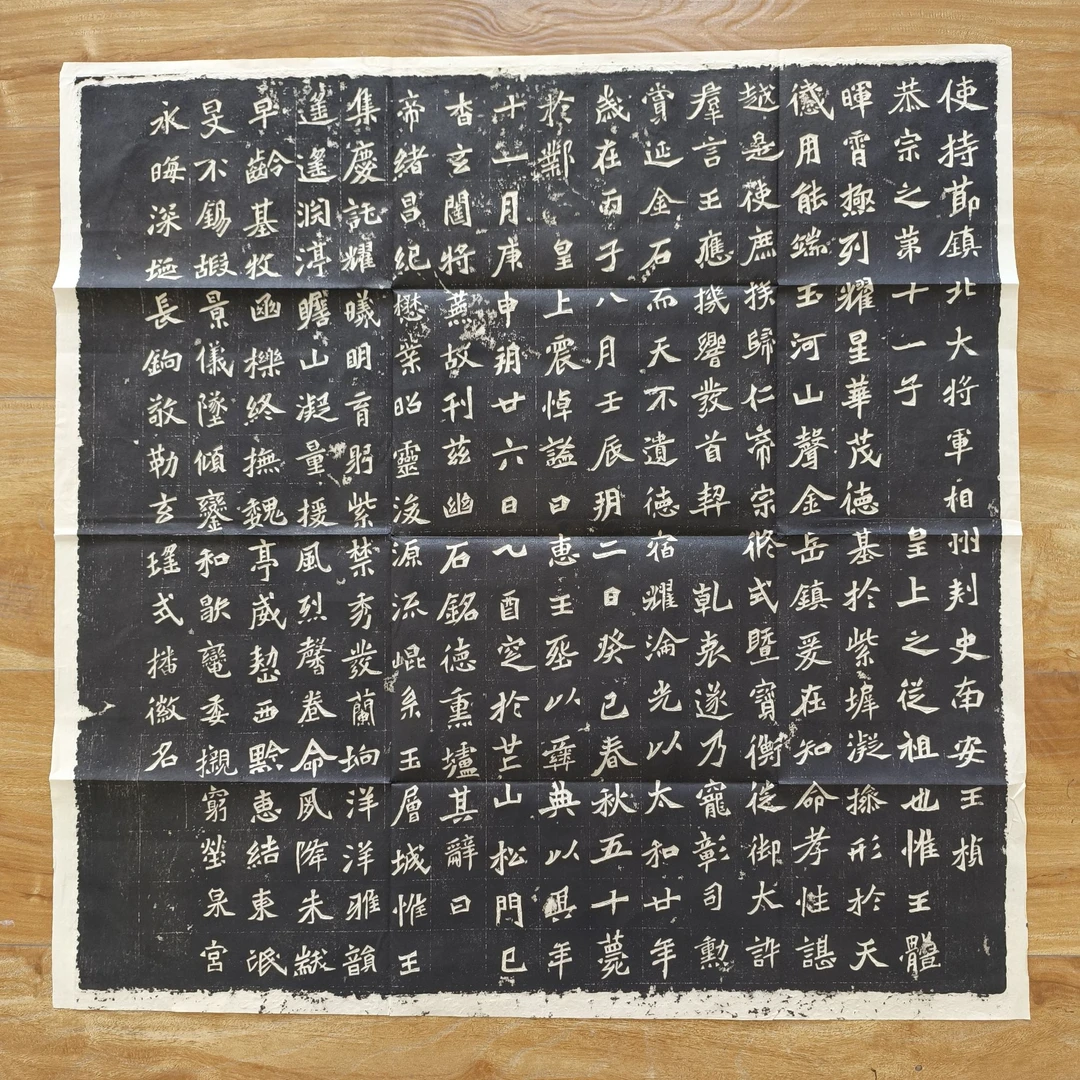 使持節鎮北大将軍相州刾史南安王楨
恭宗之第十一子 皇上之従祖也惟王體
暉霄極列耀星華茂徳基扵紫墀凝操形扵天
感用能端玉河山聲金岳鎮爰在知命孝性諶
越是使庶族歸仁帝宗攸式暨寳衡徙御大訏
羣言王應機響發首契 乹衷遂乃寵彰司勲
賞延金石而天不遺徳宿耀淪光以太和廿年
歳在丙子八月壬辰朔二日癸巳春秋五十薨
扵鄴 皇上震悼謚曰惠王𦵏以彝典以其年
十一月庚申朔廿六日乙酉窆扵芒山松門已
杳玄閨将蕪故刊兹幽石銘徳熏壚其辭曰
帝緒昌紀懋業昭靈浚源流崐系玉層城惟王
集慶託耀曦明育躬紫禁秀發蘭坰洋洋雅韻
遥遥渕渟瞻山凝量援風烈馨卷命夙降朱黻
早齡基牧函櫟終撫魏亭威愬西黔惠結東氓
旻不錫嘏景儀墜傾鑾和歇韻委櫬窮塋泉宮
永晦深埏長鉤敬勒玄瑤式播徽名